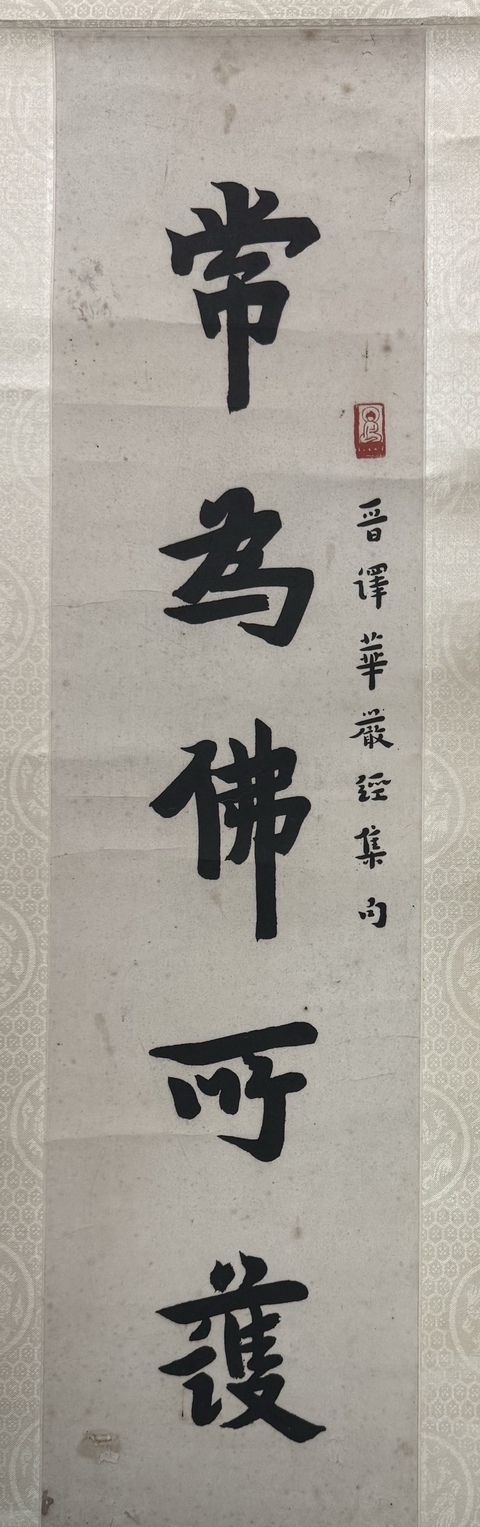 晉譯華嚴經集句
常為佛所護